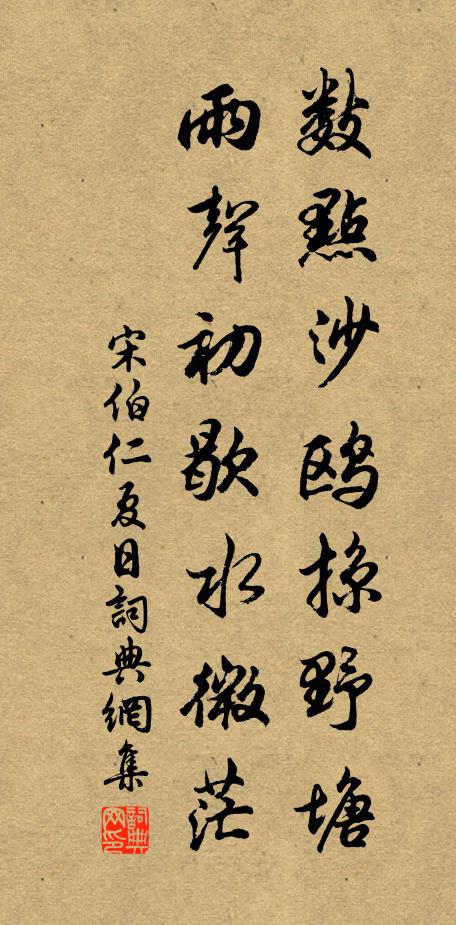 數點沙鷗掠野塘
雨聲初歇水微茫
宋伯仁夏日詞典網集
詞典網印